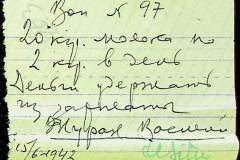 Зап N 97
20 кгр. молока по
2 кгр. в день
Деньги удержать
из зарплаты
Журан Василий
15/6 1942